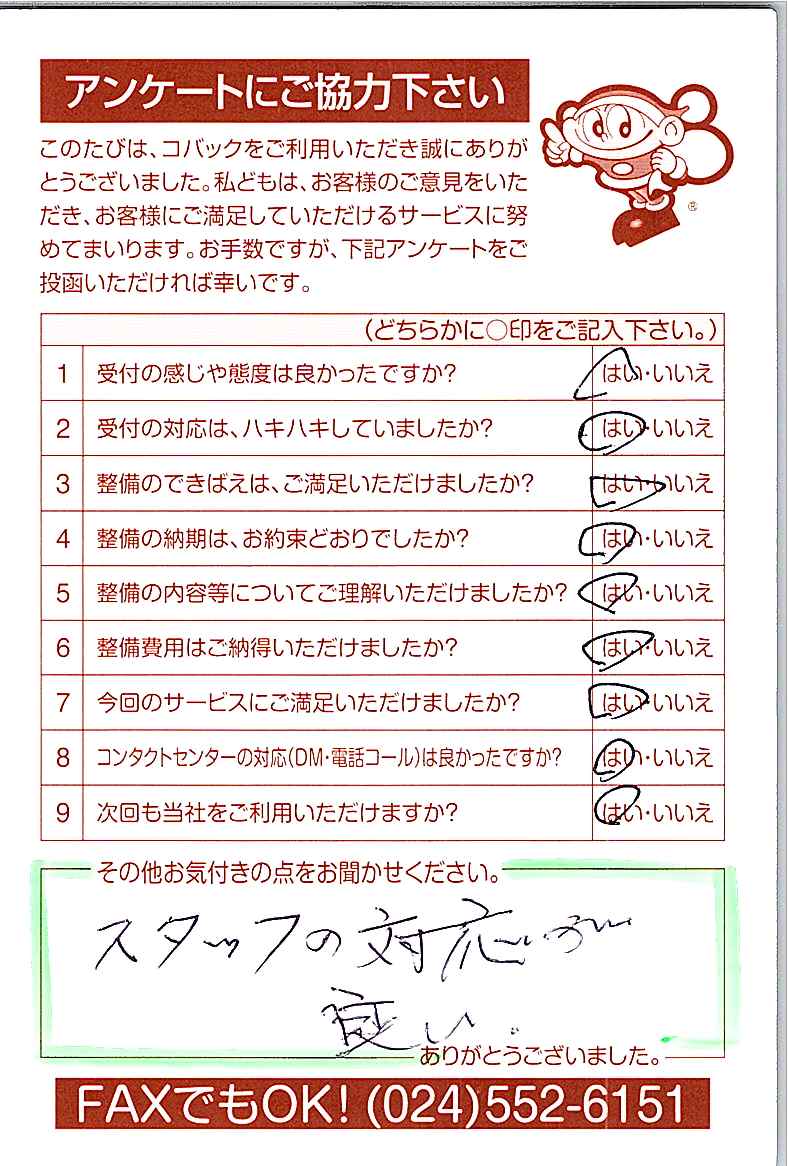 アンケートにご協力下さい
このたびは、コバックをご利用いただき誠にありが
とうございました。私どもは、お客様のご意見をいた
だき、お客様にご満足していただけるサービスに努
めてまいります。お手数ですが、下記アンケートをご
投函いただければ幸いです。
®
(どちらかに○印をご記入下さい。)
1 受付の感じや態度は良かったですか? はい・いいえ
2 受付の対応は、ハキハキしていましたか? はい・いいえ
3 整備のできばえは、ご満足いただけましたか? はい・いいえ
4 整備の納期は、お約束どおりでしたか? はい・いいえ
5 整備の内容等についてご理解いただけましたか? はい・いいえ
6 整備費用はご納得いただけましたか? はい・いいえ
7 今回のサービスにご満足いただけましたか? はい・いいえ
8 コンタクトセンターの対応(DM・電話コール)は良かったですか? はい・いいえ
9 次回も当社をご利用いただけますか? はい・いいえ
その他お気付きの点をお聞かせください。
スタッフの対応が
良い。
ありがとうございました。
FAXでもOK! (024)552-6151